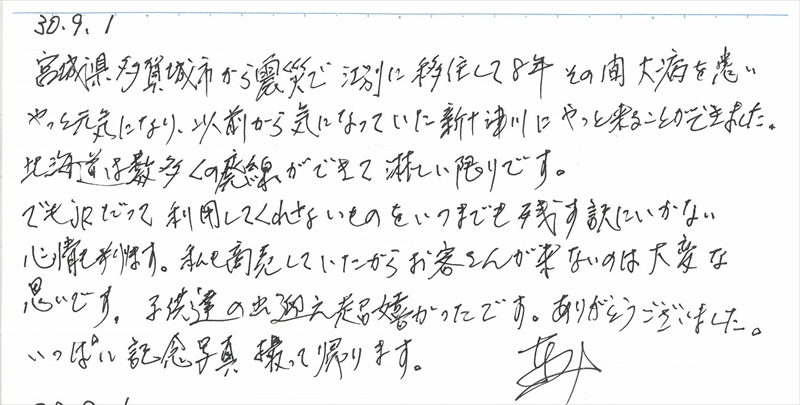 30.9.1
宮城県多賀城市から震災で江別に移住して8年 その間大病を患い
やっと元気になり、以前から気になっていた新十津川にやっと来ることができました。
北海道は数多くの廃線ができて淋しい限りです。
でもJRだって利用してくれないものをいつまでも残す訳にいかない
心情も判ります。私も商売していたからお客さんが来ないのは大変な
思いです。子供達の出迎え超嬉しかったです。ありがとうございました。
いっぱい記念写真撮って帰ります。